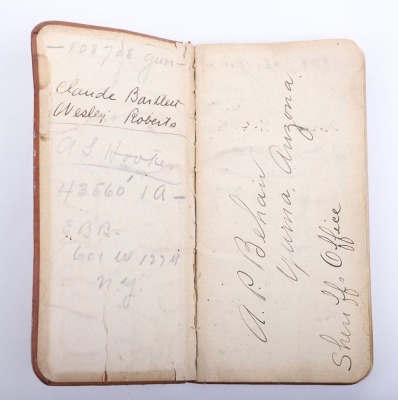 — 108708 gun —
Claude Bartlett
Wesley Roberts
A S Hooker
43560' 1A —
EBB -
601 W 127 st
N.Y.
A. P. Behan
Yuma, Arizona
Sheriffs Office